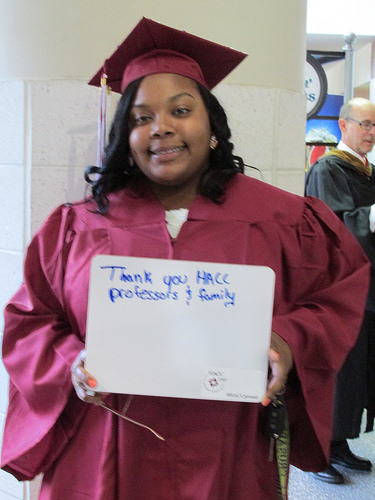 Thank you HACC
professors & family
HACC